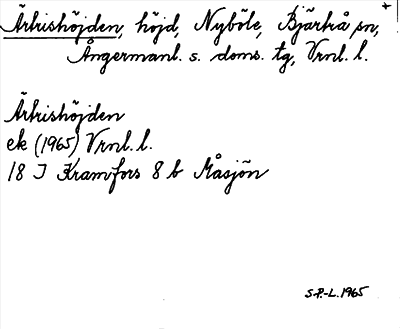 Ärtrishöjden, höjd, Nyböle, Bjärtrå sn, +
Ångermanl. s. doms. tg, Vrnl. l.
Ärtrishöjden
ek (1965) Vrnl. l.
18 I Kramfors 8 b Måsjön
S.P.-L. 1965